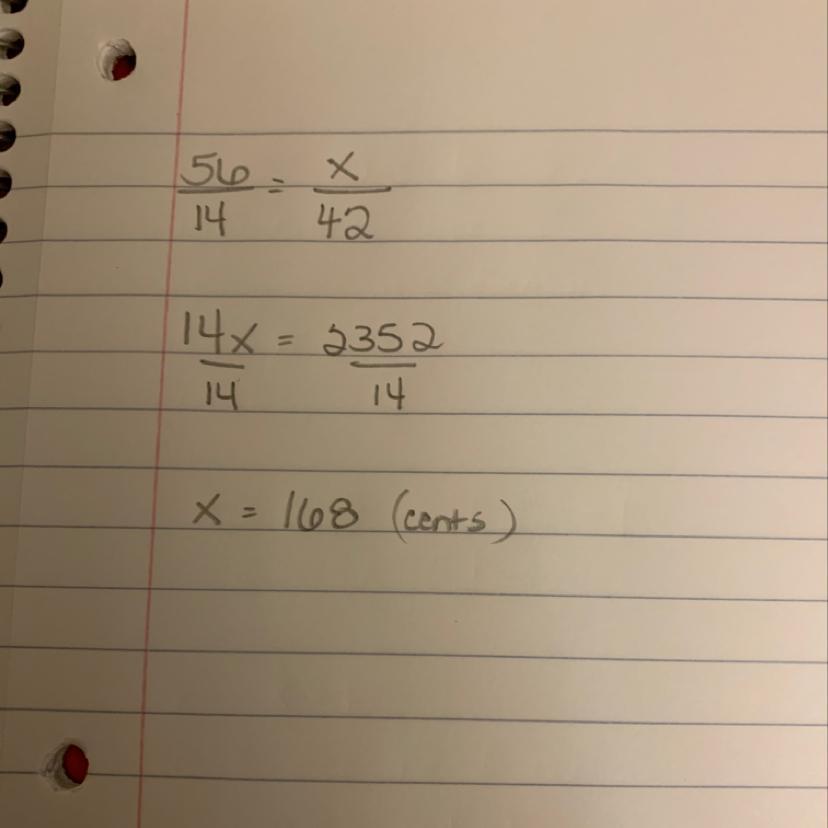 56/14 = x/42
14x/14 = 2352/14
x = 168 (cents)